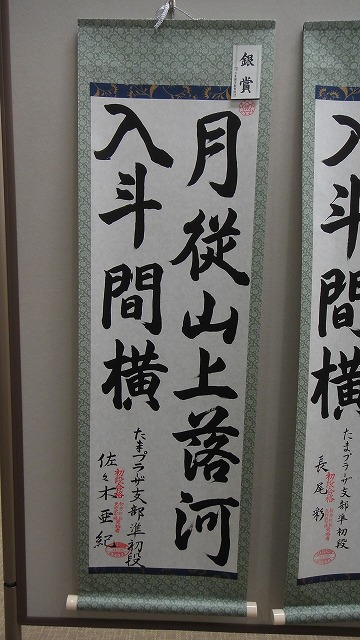 銀賞
月従山上落河
入斗間横
たまプラーザ支部準初段
佐々木亜紀
初段合格
入
間横
たまプラーザ支部準初段
長尾彩
初段合格